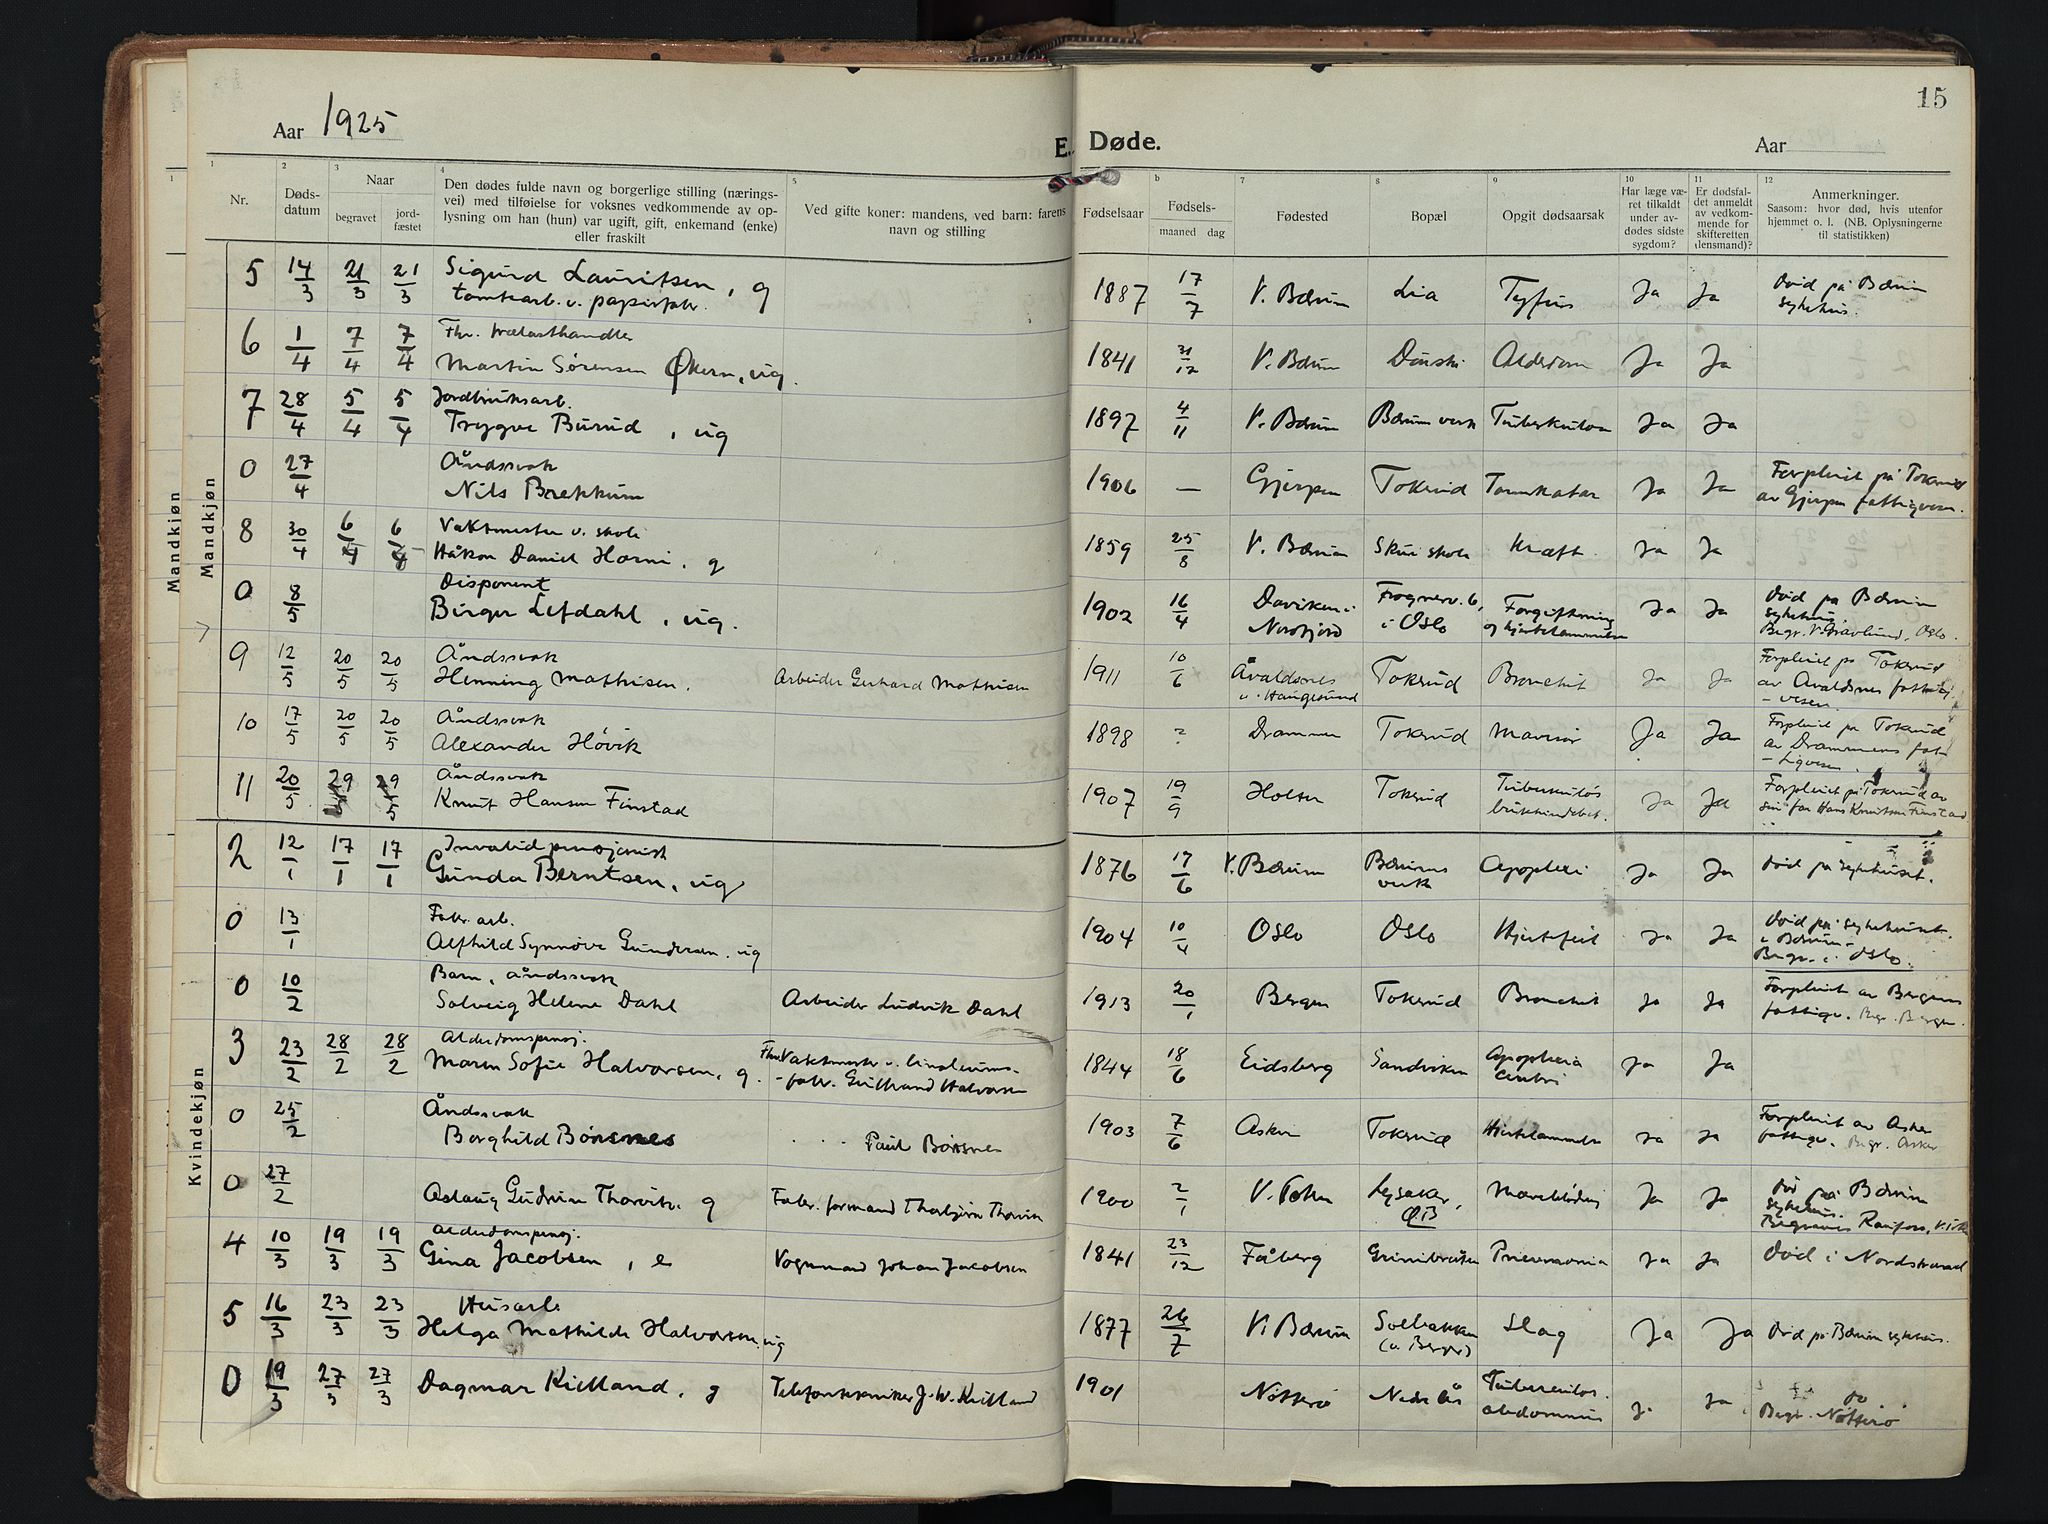 15
Aar 1925
E. Døde.
Aar
1 2 3 4 5 b 7 8 9 10 11 12
Nr.
Døds-
datum
Naar
begravet
jord-
fæstet
Den dødes fulde navn og borgerlige stilling (nærings-
vei) med tilføielse for voksnes vedkommende av op-
lysning om han (hun) var ugift, gift, enkemand (enke)
eller fraskilt
Ved gifte koner: mandens, ved barn: farens
navn og stilling
Fødselsaar
Fødsels-
maaned dag
Fødested
Bopæl
Opgit dødsaarsak
Har læge væ-
ret tilkaldt
under av-
dødes sidste
sygdom?
Er dødsfal-
det anmeldt
av vedkom-
mende for
skifteretten
(lensmand)?
Anmerkninger.
Saasom: hvor død, hvis utenfor
hjemmet o. l. (NB. Oplysningerne
til statistikken)
Mandkjøn
Mandkjøn
5 14/3 21/3 21/3 Sigurd Lauritsen, g 1887 17/7 V. Bærum Lia Tyfus Ja Ja Død på Bærum
tomtearb. v. papirfabr. sykehus.
6 1/4 7/4 7/4 Fhv. trælasthandler
Martin Sørensen Økern, ug. 1841 31/12 V. Bærum Dønski Alderdom Ja Ja
7 28/4 5/4 5/4 Jordbruksarb.
Trygve Burud, ug 1897 4/11 V. Bærum Bærum verk Tuberkulose Ja Ja
0 27/4 Åndssvak
Nils Brekkum 1906 — Gjerpen Tokerud Tarmkatar Ja Ja Forpleiet på Tokerud
av Gjerpen fattigvesen.
8 30/4 6/ 6/ Vaktmester v. skole
Håkon Daniel Horni, g 1859 25/8 V. Bærum Skui skole Kræft Ja Ja
0 8/5 Disponent
Birger Lefdahl, ug. 1902 16/4 Daviken i Frognerv. 6, Forgiftning Ja Ja Død på Bærum
Nordfjord i Oslo og hjertelammelse sykehus.
Begr. V. Gravlund, Oslo.
9 12/5 20/5 20/5 Åndssvak
Henning Mathisen. Arbeider Gerhard Mathisen 1911 10/6 Åvaldsnes Tokerud Bronchit Ja Ja Forpleiet på Tokerud
v. Haugesund av Avaldsnes fattig-
-vesen.
10 17/5 20/5 20/5 Åndssvak
Alexander Høvik 1898 ? Drammen Tokerud Mavesår Ja Ja Forpleiet på Tokerud
av Drammens fat-
-tigvesen.
11 20/5 29 29/5 Åndssvak
Knut Hansen Finstad 1907 19/9 Holsen Tokerud Tuberkuløs Ja Ja Forpleiet på Tokerud av
bukhindebet. sin far Hans Knutsen Finstad
Kvindekjøn
2 12/1 17/1 17/1 Invalidpensjonist
Gunda Berntsen, ug 1876 17/6 V. Bærum Bærums Apoplexi Ja Ja Død på sykehuset.
verk
0 13/1 Fabr. arb.
Alfhild Synnøve Gundersen. ug 1904 10/4 Oslo Oslo Hjertefeil Ja Ja Død på sykehuset
i Bærum.
Begr. i Oslo.
0 10/2 Barn, åndssvak
Solveig Helene Dahl Arbeider Ludvik Dahl 1913 20/1 Bergen Tokerud Bronchit Ja Ja Forpleiet av Bergens
fattigv. Begr. Bergen.
3 23/2 28/2 28/2 Alderdomspensj.
Maren Sofie Halvorsen, g. Fhv. Vaktmester v. linoleums- 1844 18/6 Eidsberg Sandviken Apoplexia Ja Ja
-fabr. Gulbrand Halvorsen cerebri
0 25/2 Åndssvak
Borghild Børsnes Paul Børsnes 1903 7/6 Asker Tokerud Hjertelammelse Ja Ja Forpleiet av Asker
fattigv. Begr. Asker
0 27/2 Aslaug Gudrun Thorvik. g Fabr. formand Thorbjørn Thorvik 1900 2/1 V. Toten Lysaker, Maveblødning Ja Ja Død på Bærum
ØB sykehus.
Begraves Raufoss, V. Toten
4 10/3 19/3 19/3 Alderdomspensj.
Gina Jacobsen, e Vognmand Johan Jacobsen 1841 23/12 Fåberg Grinibråten Pneumonia Ja Ja Død i Nordstrand
5 16/3 23/3 23/3 Husarb.
Helga Mathilde Halvorsen, ug 1877 26/7 V. Bærum Solbakken Slag Ja Ja Død på Bærum sykehus.
(v. Berger)
0 19/3 27/3 27/3 Dagmar Kielland, g Telefontekniker J. W. Kielland 1901 Nøtterø Nedre Ås Tuberculos. Ja Ja do.
abdominis Begr. Nøtterø